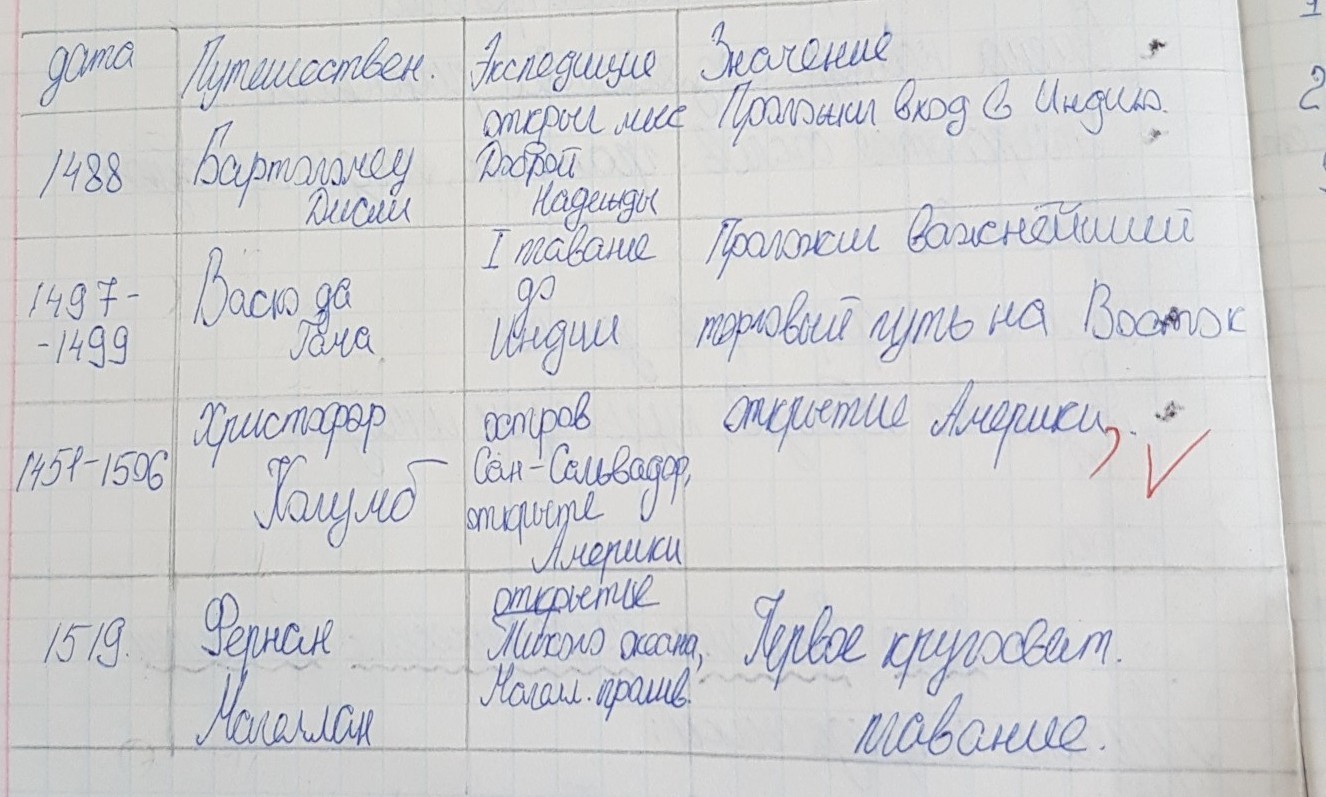 дата Путешествен. Экспедиции Значение
1488 Бартоломеу Диаш открыл мыс Доброй Надежды Проложил вход в Индию.
1497- -1499 Васко да Гама I плавание до Индии Проложил важнейший торговый путь на Восток
1451-1506 Христофор Колумб остров Сан-Сальвадор, открыте Америки открытие Америки,.
1519. Фернан Магеллан открытие Тихого океана, Магелл. пролив. Первое кругосвет. плавание.
1
2